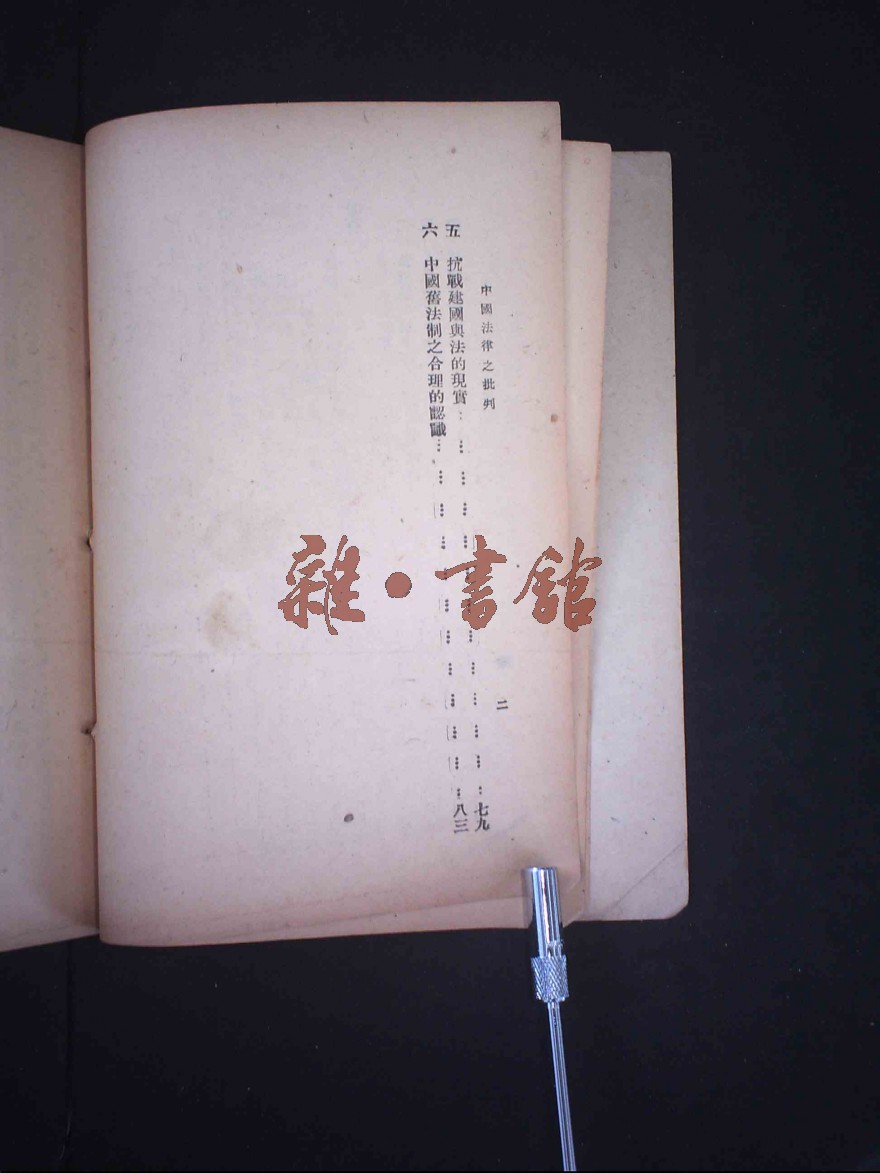 中國法律之批判
二
五 抗戰建國與法的現實……七九
六 中國舊法制之合理的認識……八三
雜·書館